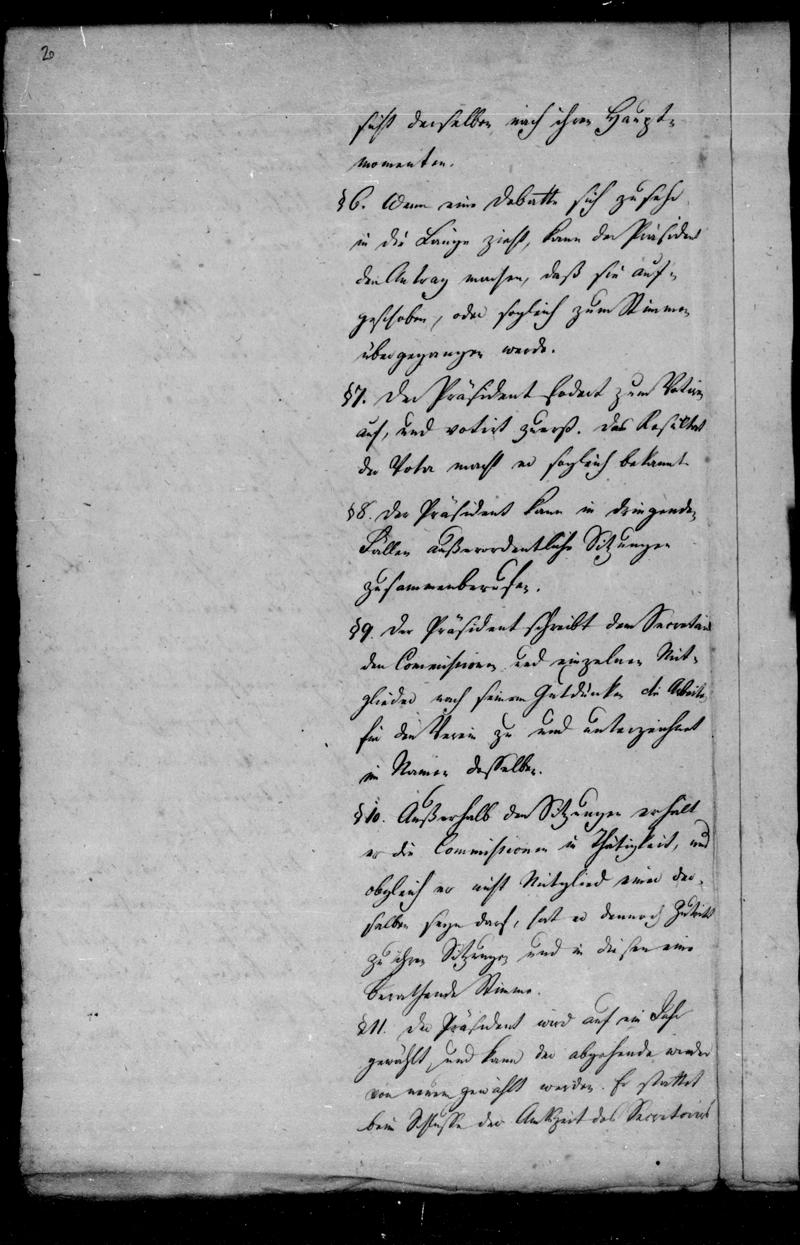 20
sicht derselben nach ihren Haupt-
momenten.
§6. Wenn eine Debatte sich zu sehr
in die Länge zieht, kann der Präsident
den Antrag machen, daß sie auf-
geschoben, oder sogleich zum Stimmen
übergegangen werde.
§7. Der Präsident fodert zum Votiren
auf, und votirt zuerst. Das Resultat
der Vota macht er sogleich bekannt.
§8. Der Präsident kann in dringenden
Fällen außerordentliche Sitzungen
zusammenberufen.
§9. Der Präsident schreibt dem Secretair
den Commissionen und einzelnen Mit-
glieder nach seinem Gutdünken die Arbeiten
für den Verein zu und unterzeichnet
im Namen desselben.
§10. Außerhalb den Sitzungen erhält
er die Commissionen in Thätigkeit, und
obgleich er nicht Mitglied einer der-
selben seyn darf, hat er dennoch Zutritt
zu ihren Sitzungen und in diesen eine
berathende Stimme.
§11. Der Präsident wird auf ein Jahr
gewählt, und kann der abgehende wieder
von neuem gewählt werden. Er stattet
beim Schlusse der Amtszeit des Secretairs